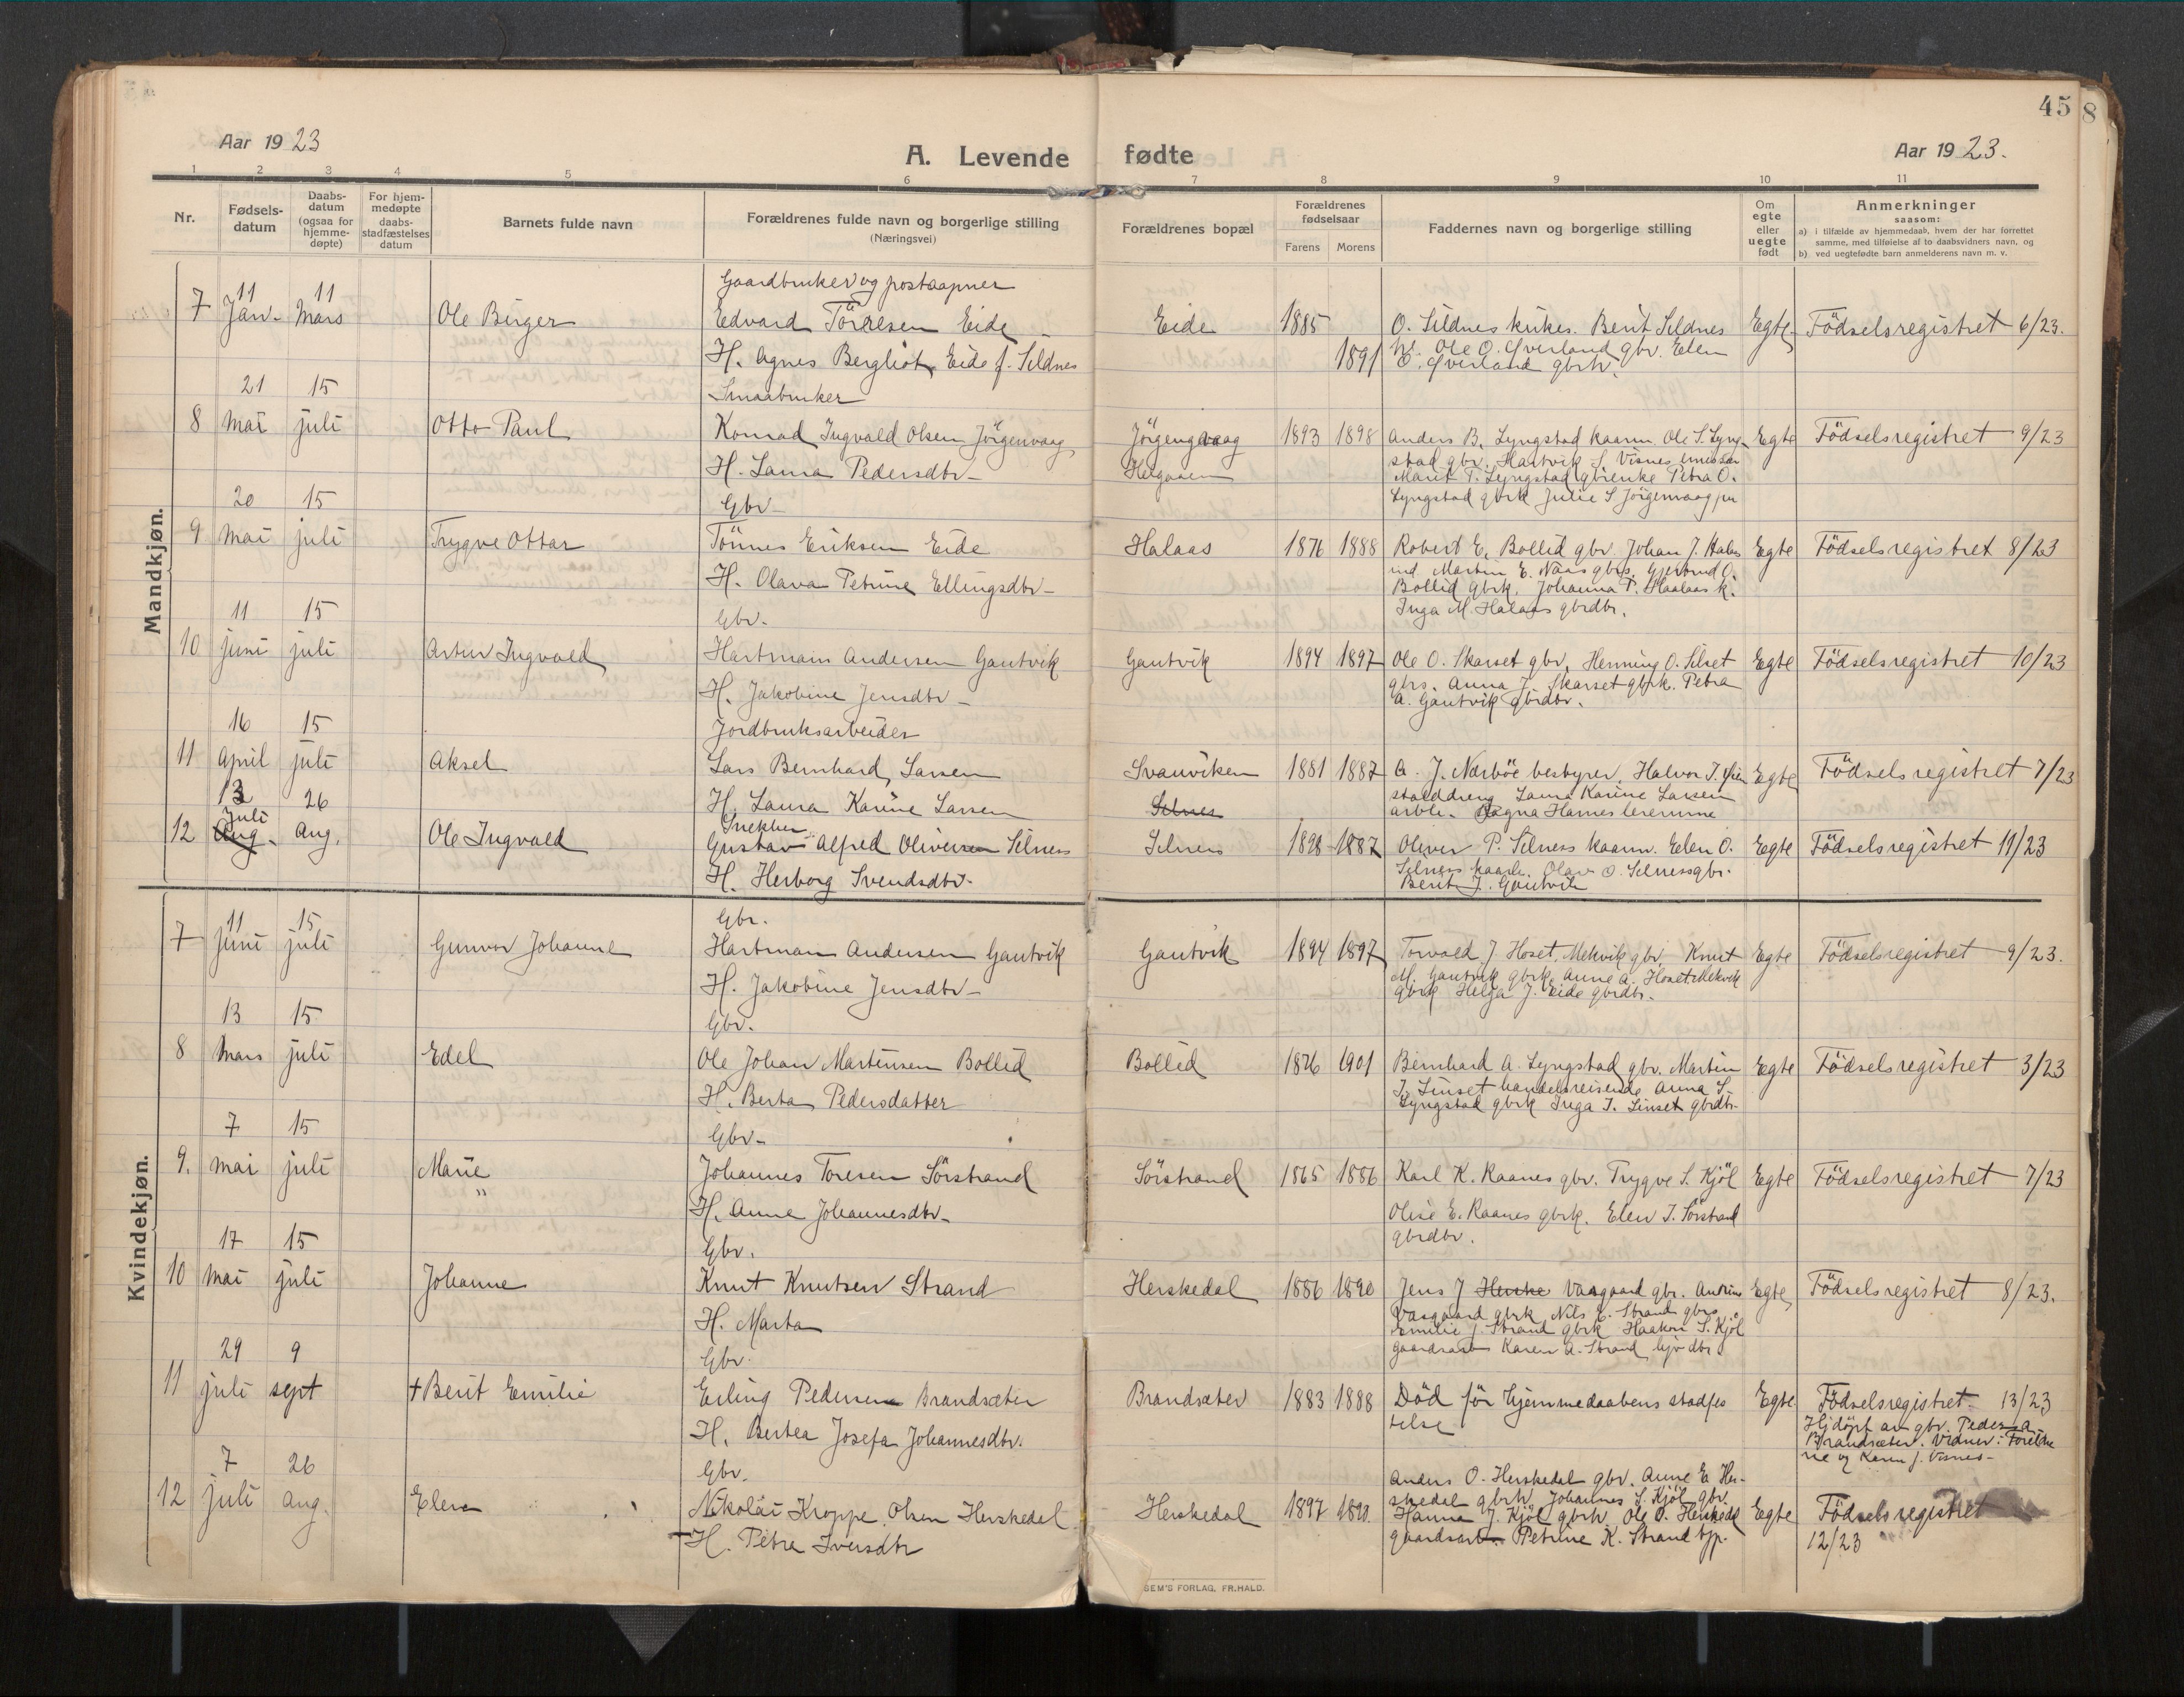 45
8
Aar 1923
A. Levende fødte
Aar 1923.
1 2 3 4 5 6 7 8 9 10 11
Nr.
Fødsels-
datum
Daabs-
datum
(ogsaa for
hjemme-
døpte)
For hjem-
medøpte
daabs-
stadfæstelses
datum
Barnets fulde navn
Forældrenes fulde navn og borgerlige stilling
(Næringsvei)
Forældrenes bopæl
Forældrenes
fødselsaar
Farens Morens
Faddernes navn og borgerlige stilling
Om
egte
eller
uegte
født
Anmerkninger
saasom:
a) i tilfælde av hjemmedaab, hvem der har forrettet
samme, med tilføielse af to daabsvidners navn, og
b) ved uegtefødte barn anmelderens navn m. v.
Mandkjøn.
Gaardbruker og postaapner
11 11
7 Jan. Mars Ole Birger Edvard Töresen Eide Eide 1885 O. Sildnes kirkes. Berit Sildnes Egte Födselsregistret 6/23.
H. Agnes Bergliot Eide f. Sildnes 1891 Ole O. Sverland gbr. Elen
O. Sverland gbrk.
21 15 Smaabruker
8 mai juli Otto Paul Konrad Ingvald Olsen Jörgenvaag Jörgenvaag 1893 1898 Anders B. Lyngstad kaarm. Ole S. Lyng- Egte Födselsregistret 9/23
H. Laura Pedersdtr. stad gbr. Hartvik S. Visnes
Marit T. Lyngstad gbrenke Petra O.
Lyngstad gbrk Julie S Jörgenvaag
20 15 Gbr.
9 mai juli Trygve Ottar Tönnes Eriksen Eide Halaas 1876 1888 Robert E. Bollid gbr. Johan J. Halas Egte Födselsregistret 8/23
H. Olava Petrine Ellingsdtr. ind. Martin E. Naas gbrs. Gjertrud O.
Bollid gbrk. Johanna P. Haalaas k.
Inga M. Halaas gbrdtr.
11 15 Gbr.
10 juni juli Artur Ingvald Hartman Andersen Gautvik Gautvik 1894 1897 Ole O. Skarset gbr. Henning O. Silset Egte Födselsregistret 10/23
H. Jakobine Jensdtr. gbrs. Anna J. Skarset gbrk. Petra
A. Gautvik gbrdtr.
16 15 Jordbruksarbeider
11 April juli Aksel Lars Bernhard Larsen Svanviken 1881 1887 A. J. Nærböe bestyrer, Halvor J. Egte Födselsregistret 7/23
H. Laura Karine Larsen Selnes stalddreng Laura Karine Larsen
arbk. Ragna Harnes lererinne
13 26 Snekker
12 Aug. Juli Aug. Ole Ingvald Gustav Alfred Oliversen Silness Selness 1898 1887 Oliver P. Silness kaarm. Elen O. Egte Födselsregistret 11/23
H. Herborg Svendsdtr. Silness kaark. Olav O. Selness gbr.
Berit J. Gautvik
Kvindekjøn.
11 15 Gbr.
7 juni juli Gunvor Johanne Hartman Andersen Gautvik Gautvik 1894 1897 Torvald J Hoset, Mekvik gbr. Knut Egte Födselsregistret 9/23.
H. Jakobine Jensdtr. M. Gautvik gbrk. Anne A. Hoset Mekvik
gbrk Helga J. Eide gbrdtr.
13 15 Gbr.
8 Mars juli Edel Ole Johan Martinsen Bollid Bollid 1876 1901 Bernhard A. Lyngstad gbr. Martin Egte Födselsregistret 3/23
H. Berta Pedersdatter J. Linset handelsreisende Anna S.
Lyngstad gbrk Inga J. Linset gbrdtr.
7 15 Gbr.
9. mai juli Marie Johannes Toresen Sörstrand Sörstrand 1865 1886 Karl K. Raanes gbr. Trygve S. Kjöl Egte Födselsregistret 7/23
H. Anne Johannesdtr. Olise E. Raanes gbrk. Elen J. Sörstrand
gbrdtr.
17 15 Gbr.
10 mai juli Johanne Knut Knutsen Strand Herskedal 1886 1890 Jens J Herske Vasgaard gbr. Andrine Egte Födselsregistret 8/23.
H. Marta Vasgaard gbrk Nils K. Strand gbrs.
Emilie J. Strand gbrk Haakon S. Kjöl
gaardsarb Karen A. Strand
29 9 Gbr.
11 juli sept + Berit Emilie Erling Pedersen Brandsæter Brandsæter 1883 1888 Död för hjemmedaabens stadfes Egte. Födselsregistret. 13/23
H. Bertea Josefa Johannesdtr. telse Hjdöpt av gbr. Peder A.
Brandsæter. Vidner: Foreldre
ne og Karen J. Visnes
7 26 Gbr.
12 juli aug. Elen Nikolai Kroppe Olsen Herskedal Herskedal 1897 1890 Anders O. Herskedal gbr. Anne E. Her- Egte Födselsregistret
H. Petra Iversdtr skedal gbrk Johannes S. Kjöl gbr. 12/23
Hanna J. Kjöl gbrk Ole O. Herskedal
gaardsarb. Petrine K. Strand tjp.
SEM'S FORLAG, FR.HALD.